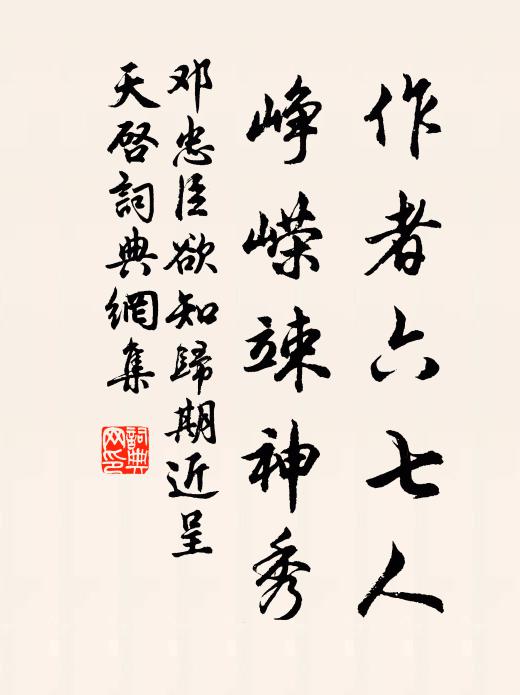 作者六七人
峥嵘竦神秀
邓忠臣欲知歸期近呈
天啓詞典網集
詞典
网印